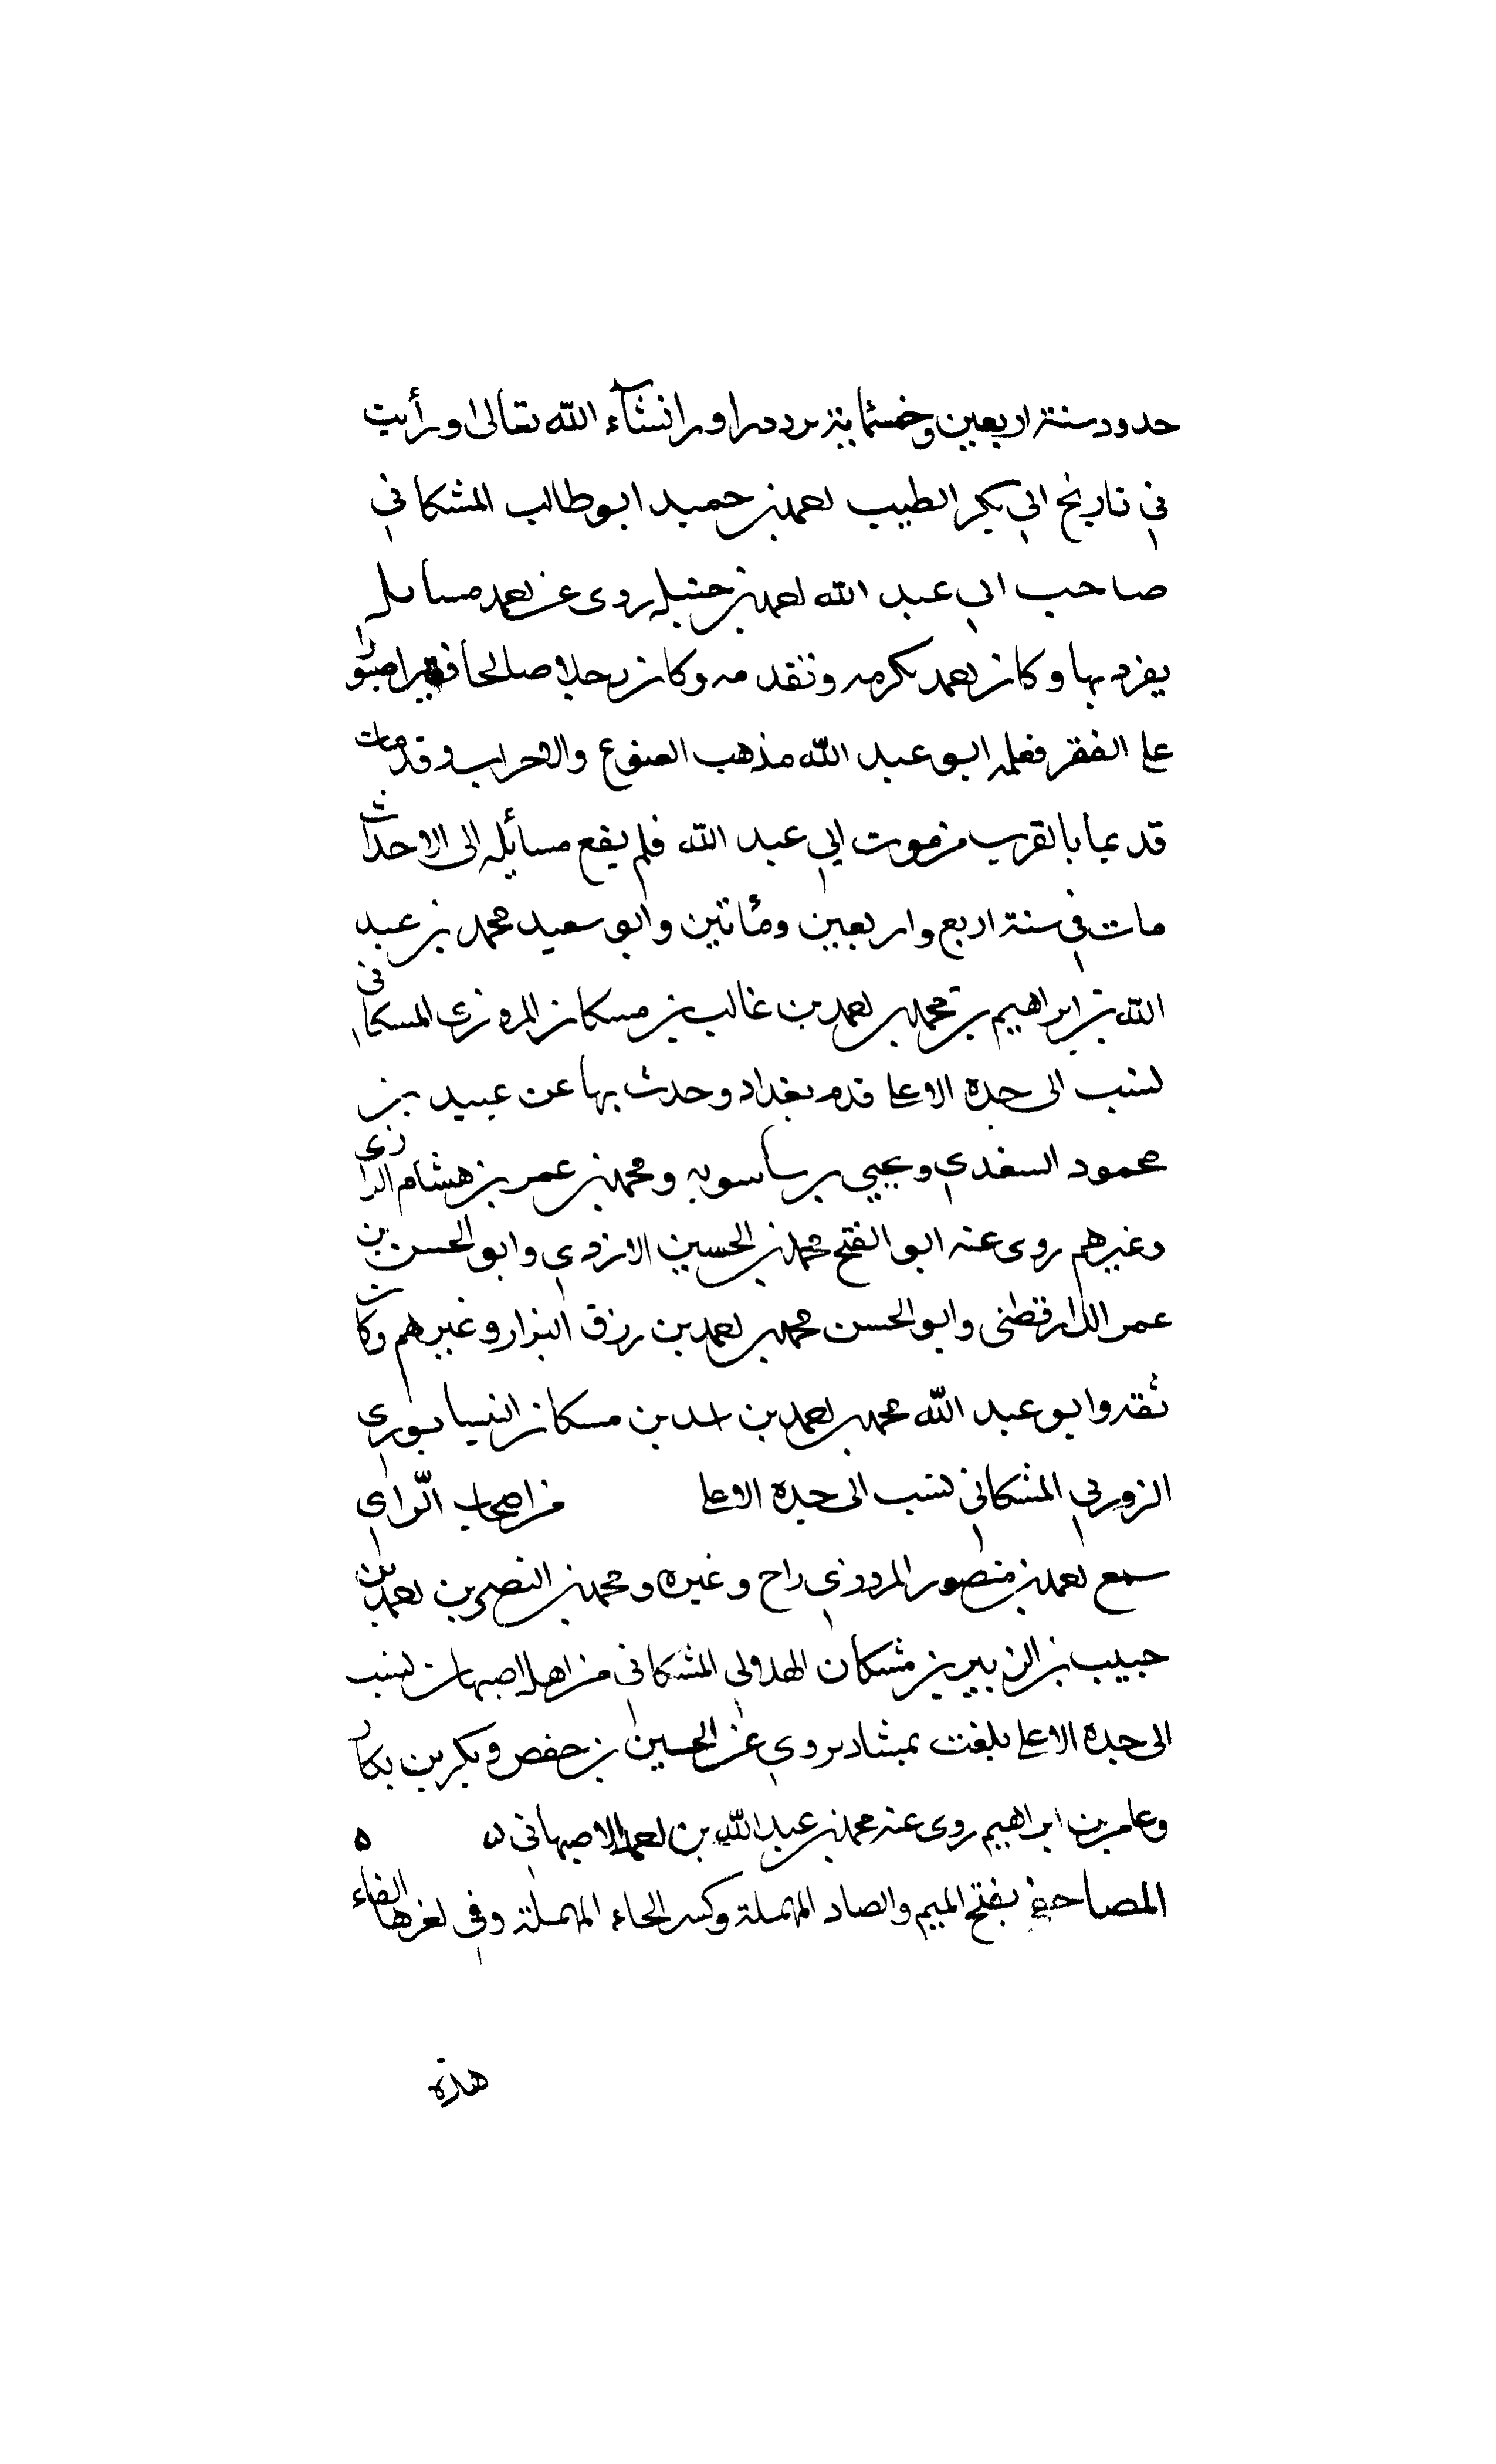 حدود سنة اربعين وخمسمائة بروذراور انشآء الله تعالى ورأيت
في تاريخ ابي بكر الطيب احمد بن حميد ابو طالب المشكاني
صاحب ابي عبد الله احمد بن حنبل روى عن احمد مسايل
يفرد بها وكان احمد يكرمه وتقدمه وكان رجلا صالحا فقيرا صبورا
على الفقر فعلمه ابو عبد الله مذهب القنوع والاحراب وقد مات
قديما بالقرب من موت ابي عبد الله فلم يقع مسايله الى الاحداث
مات في سنة اربع واربعين ومأتين وابو سعيد محمد بن عبد
الله بن ابراهيم بن محمد بن احمد بن غالب بن مسكان المروزى المسكاني
نسب الى جده الاعلى قدم بغداد وحدث بها عن عبيد بن
محمود السغدي ويحيى بن ساسويه ومحمد بن عمر بن هشام الرازى
وغيرهم روى عنه ابو الفتح محمد بن الحسين الازدي وابو الحسن بن
عمر الدارقطنى وابو الحسن محمد بن احمد بن رزق البزار وغيرهم وكان
ثقة وابو عبد الله محمد بن احمد بن اسد بن مسكان النيسابوري
الزورني المشكاني نسب الى جده الاعلى من اصحاب الراي
سمع احمد بن منصور المروزي راح وغيره ومحمد بن النصر بن احمد بن
حبيب بن الزبير بن مشكان الهدولي المشكاني من اهل اصبهان نسب
الى جده الاعلى بلغت بمشاد يروي عن الحسين بن حفص وبكر بن بكار
وعامر بن ابراهيم روى عنه محمد بن عبد الله بن احمد الاصبهاني ه
المصاحفي بفتح الميم والصاد المهملة وكسر الحاء المهملة وفي اخرها الفاء
هذه